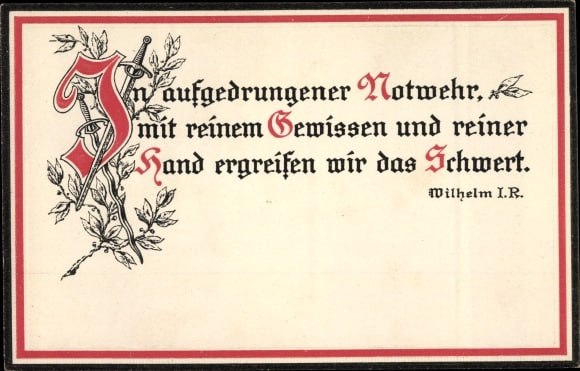 In aufgedrungener Notwehr,
mit reinem Gewissen und reiner
Hand ergreifen wir das Schwert.
Wilhelm I.R.